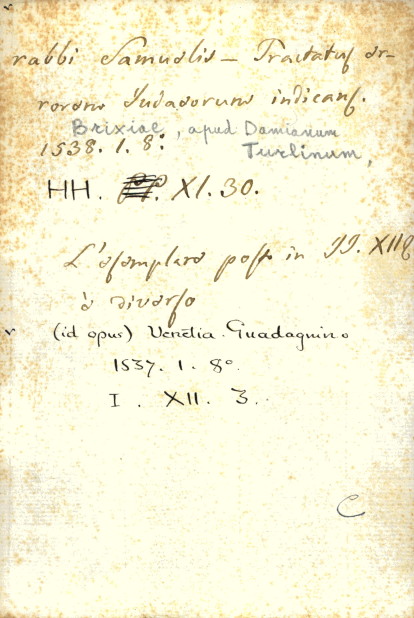 rabbi Samuelis - Tractatus er-
rorem Judaeorum indicans.
Brixiae, apud Damianum
1538. 1. 8º.
Turlinum,
HH. XI. 30.
L'esemplare posto in II. XII
è diverso
(id opus) Venetia. Guadagnino
1537. 1. 8º.
I. XII. 3.
C